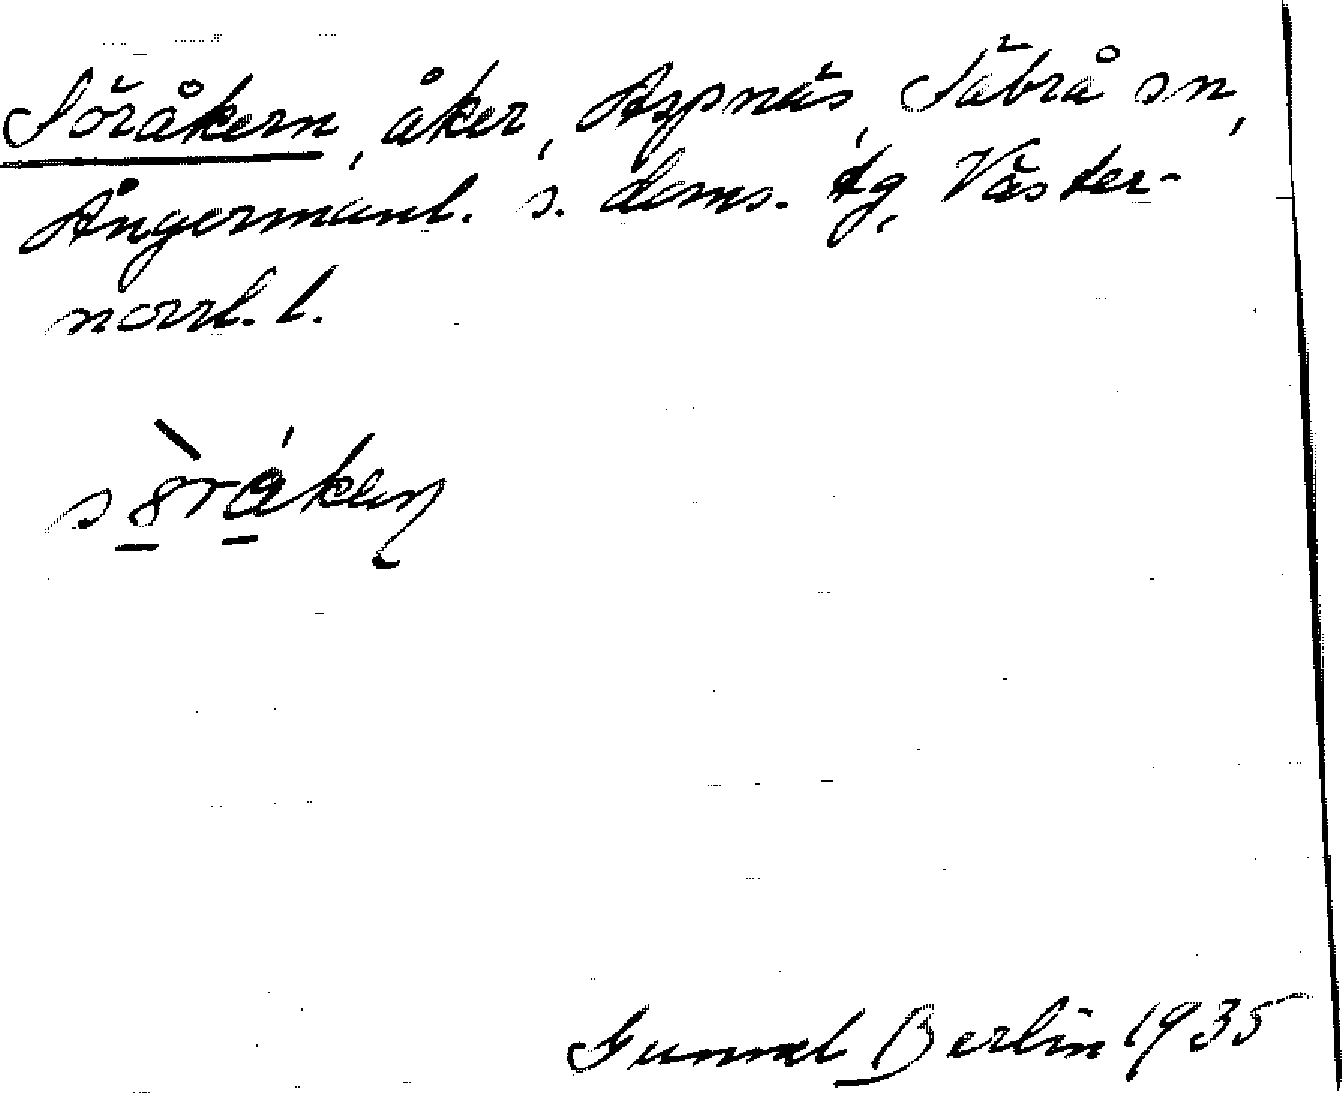 Söråkern, åker, Aspnäs, Säbrå sn,
Ångermanl. s. doms. tg, Väster-
norrl. l.
Gunnel Berlin 1935